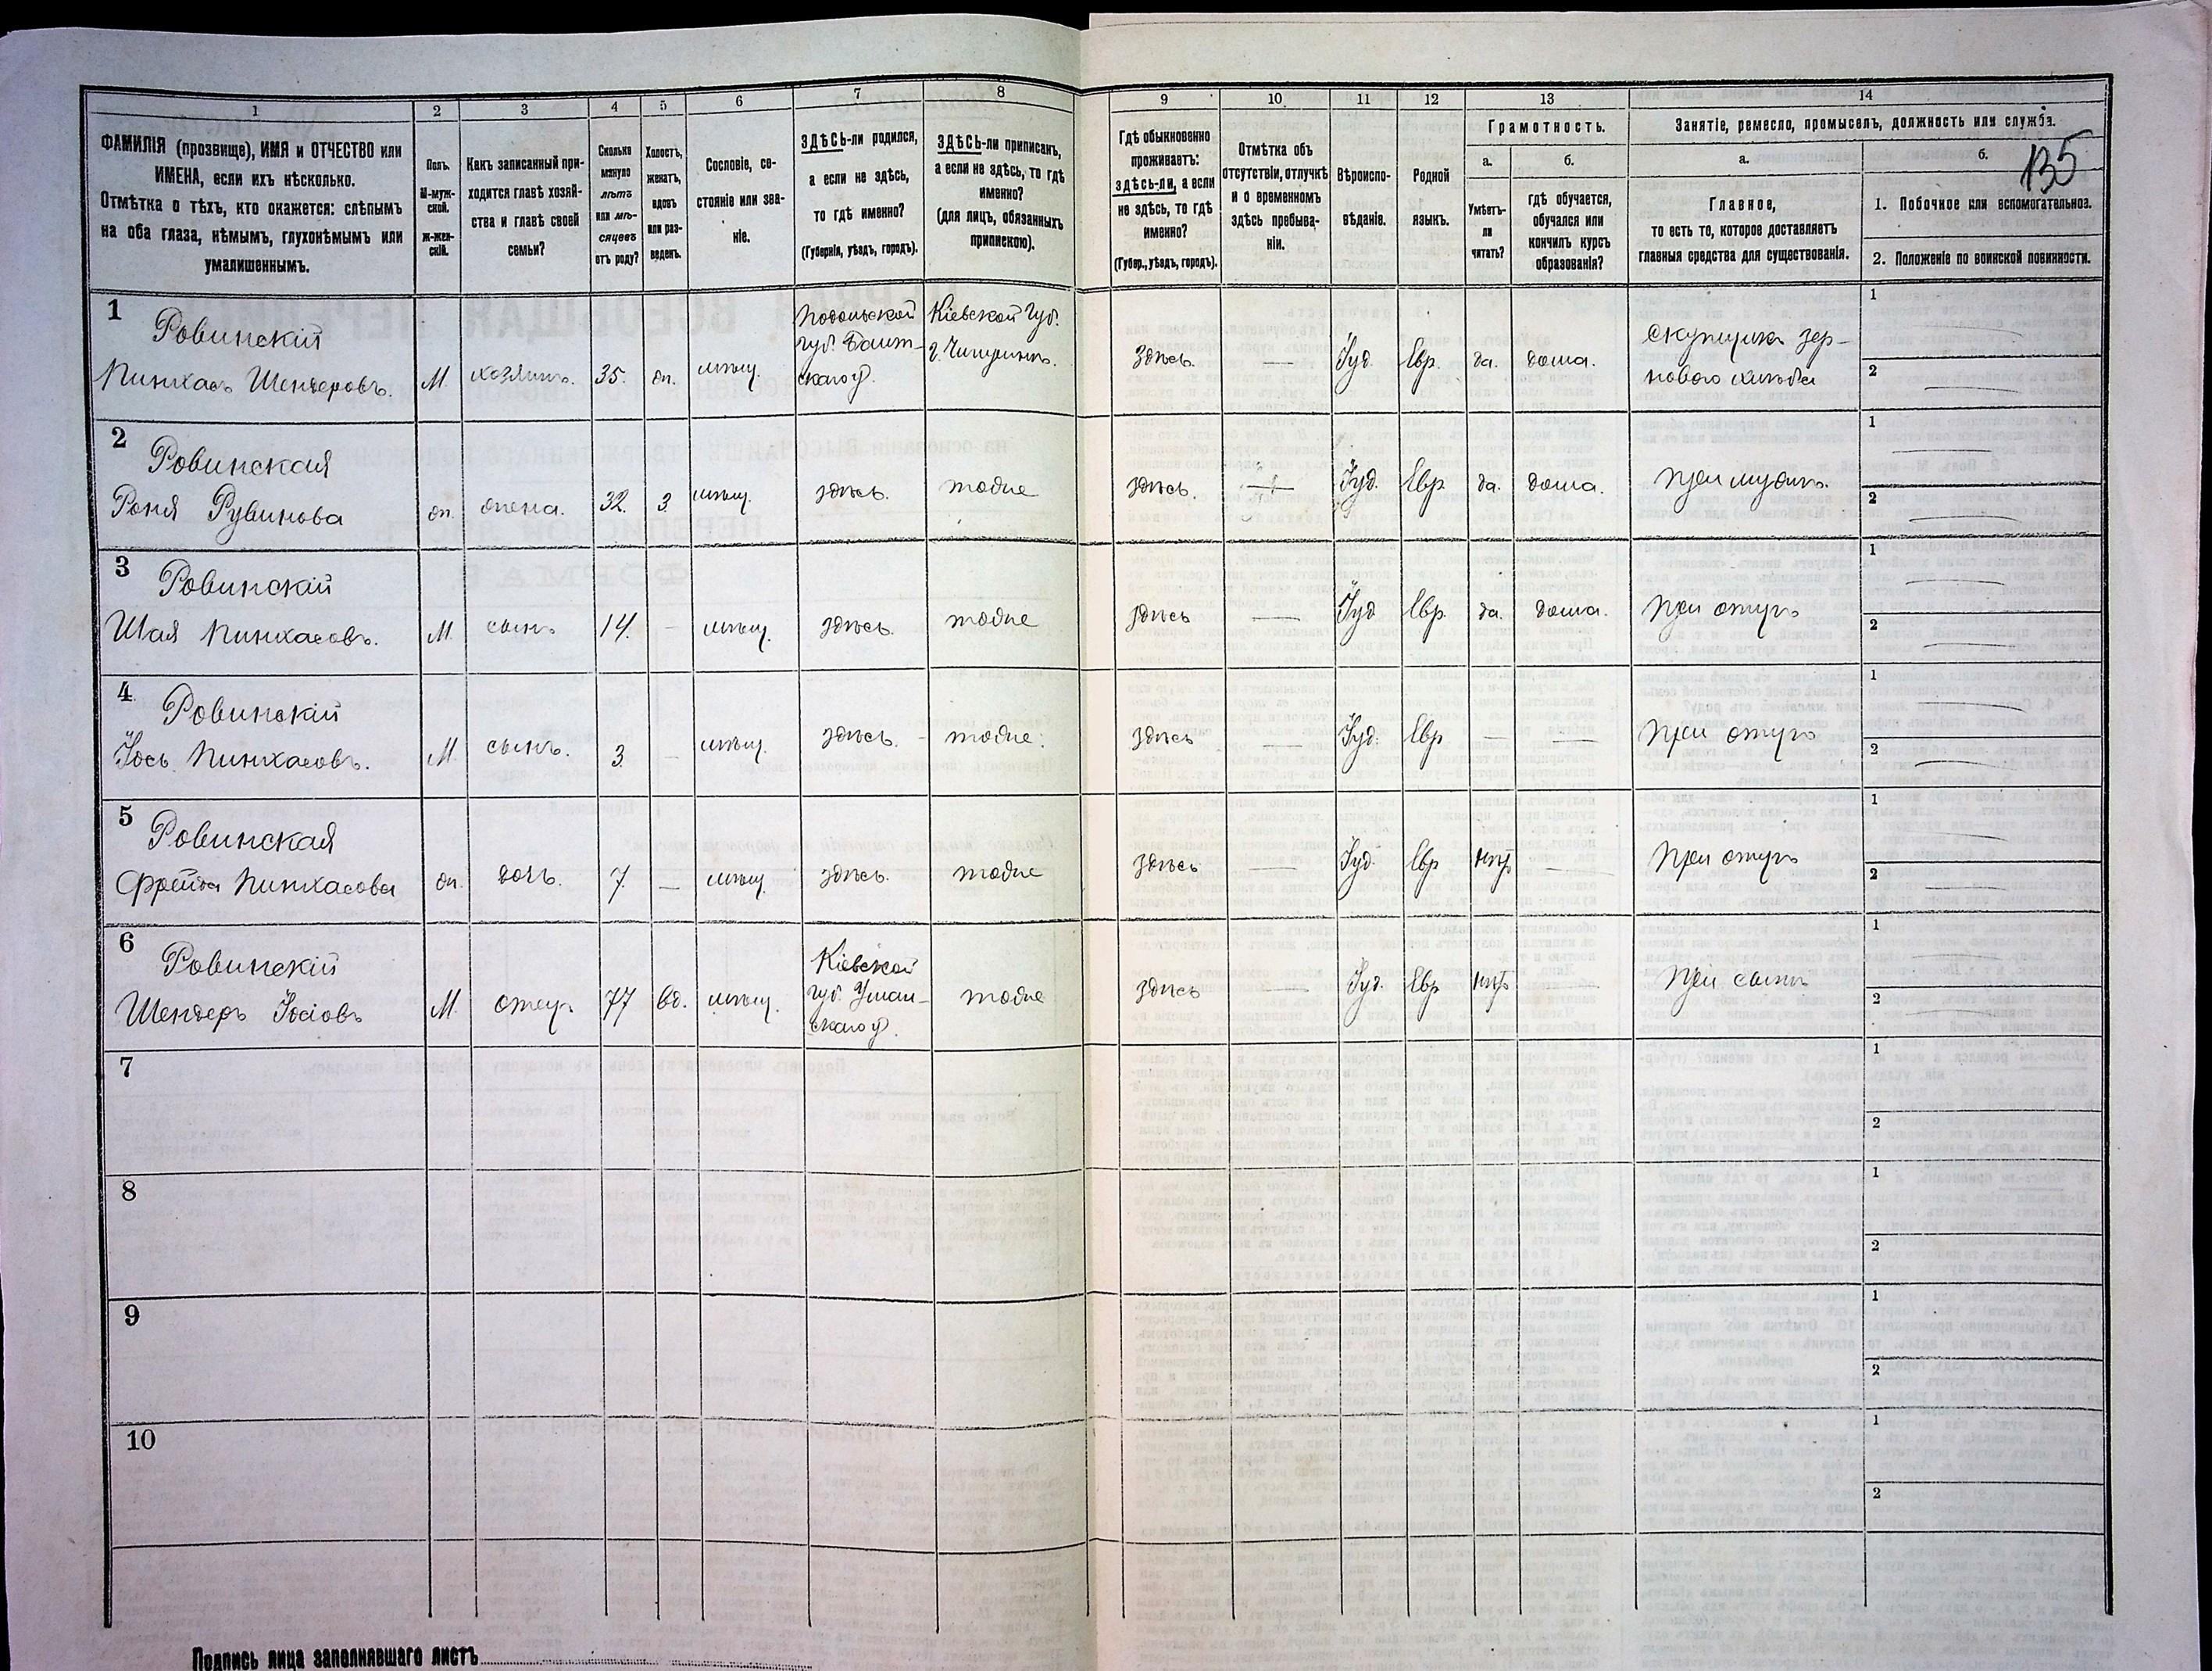 1 2 3 4 5 6 7 8 9 10 11 12 13 14
ФАМИЛІЯ (прозвище), ИМЯ и ОТЧЕСТВО или
ИМЕНА, если ихъ нѣсколько.
Отмѣтка о тѣхъ, кто окажется: слѣпымъ
на оба глаза, нѣмымъ, глухонѣмымъ или
умалишеннымъ.
Полъ.
М-муж-
ской.
ж-жен-
скій.
Какъ записанный при-
ходится главѣ хозяй-
ства и главѣ своей
семьи?
Сколько
минуло
лѣтъ
или мѣ-
сяцевъ
отъ роду?
Холостъ,
женатъ,
вдовъ
или раз-
веденъ.
Сословіе, со-
стояніе или зва-
ніе.
ЗДѢСЬ-ли родился,
а если не здѣсь,
то гдѣ именно?
(Губернія, уѣздъ, городъ).
ЗДѢСЬ-ли приписанъ,
а если не здѣсь, то гдѣ
именно?
(для лицъ, обязанныхъ
припискою).
Гдѣ обыкновенно
проживаетъ:
здѣсь-ли, а если
не здѣсь, то гдѣ
именно?
(Губер., уѣздъ, городъ).
Отмѣтка объ
отсутствіи, отлучкѣ
и о временномъ
здѣсь пребыва-
ніи.
Вѣроиспо-
вѣданіе.
Родной
языкъ.
Грамотность.
а.
Умѣетъ-
ли
читать?
б.
гдѣ обучается,
обучался или
кончилъ курсъ
образованія?
Занятіе, ремесло, промыселъ, должность или служба.
а.
Главное,
то есть то, которое доставляетъ
главныя средства для существованія.
б.
135
1. Побочное или вспомогательное.
2. Положеніе по воинской повинности.
1
Ровинскій
Пинхасъ Шендеровъ.
М. хозяинъ. 35. ж. мѣщ.
Подольской
губ. Балт-
скаго у.
Кіевской губ.
г. Чигиринъ.
Здѣсь. — Іуд. Евр. да. дома.
Скупщикъ зер-
нового хлѣба
1 —
2 —
2
Ровинская
Роня Рувинова
ж. жена. 32. З. мѣщ. здѣсь. тоже здѣсь. — Іуд. Евр да. дома. При мужѣ.
1 —
2 —
3
Ровинскій
Шая Пинхасовъ.
М. сынъ 14. — мѣщ. здѣсь. тоже здѣсь — Іуд Евр. да. дома. При отцѣ
1 —
2 —
4
Ровинскій
Іось Пинхасовъ.
М. сынъ. 3. — мѣщ. здѣсь. тоже. здѣсь — Іуд. Евр — — При отцѣ
1 —
2 —
5
Ровинская
Фрейда Пинхасова
ж. дочь. 7. — мѣщ. здѣсь. тоже здѣсь — Іуд. Евр нѣт — При отцѣ
1 —
2 —
6
Ровинскій
Шендеръ Іосіовъ
М. отец. 77 вд. мѣщ.
Кіевской
губ. Уман-
скаго у.
тоже здѣсь — Іуд. Евр нѣт — При сынѣ
1 —
2 —
7
1
2
8
1
2
9
1
2
10
1
2
Подпись лица заполнявшаго листъ